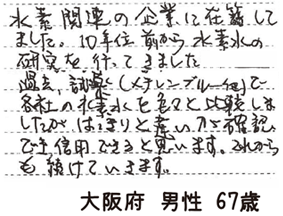 水素関連の企業に在籍して
ました。10年位前から水素水の
研究を行ってきました
過去、試薬(メチレンブルー他)で
各社の水素水を色々と比較しま
したが はっきりと違いが確認
でき信用できると思います。これから
も続けていきます。
大阪府 男性 67歳